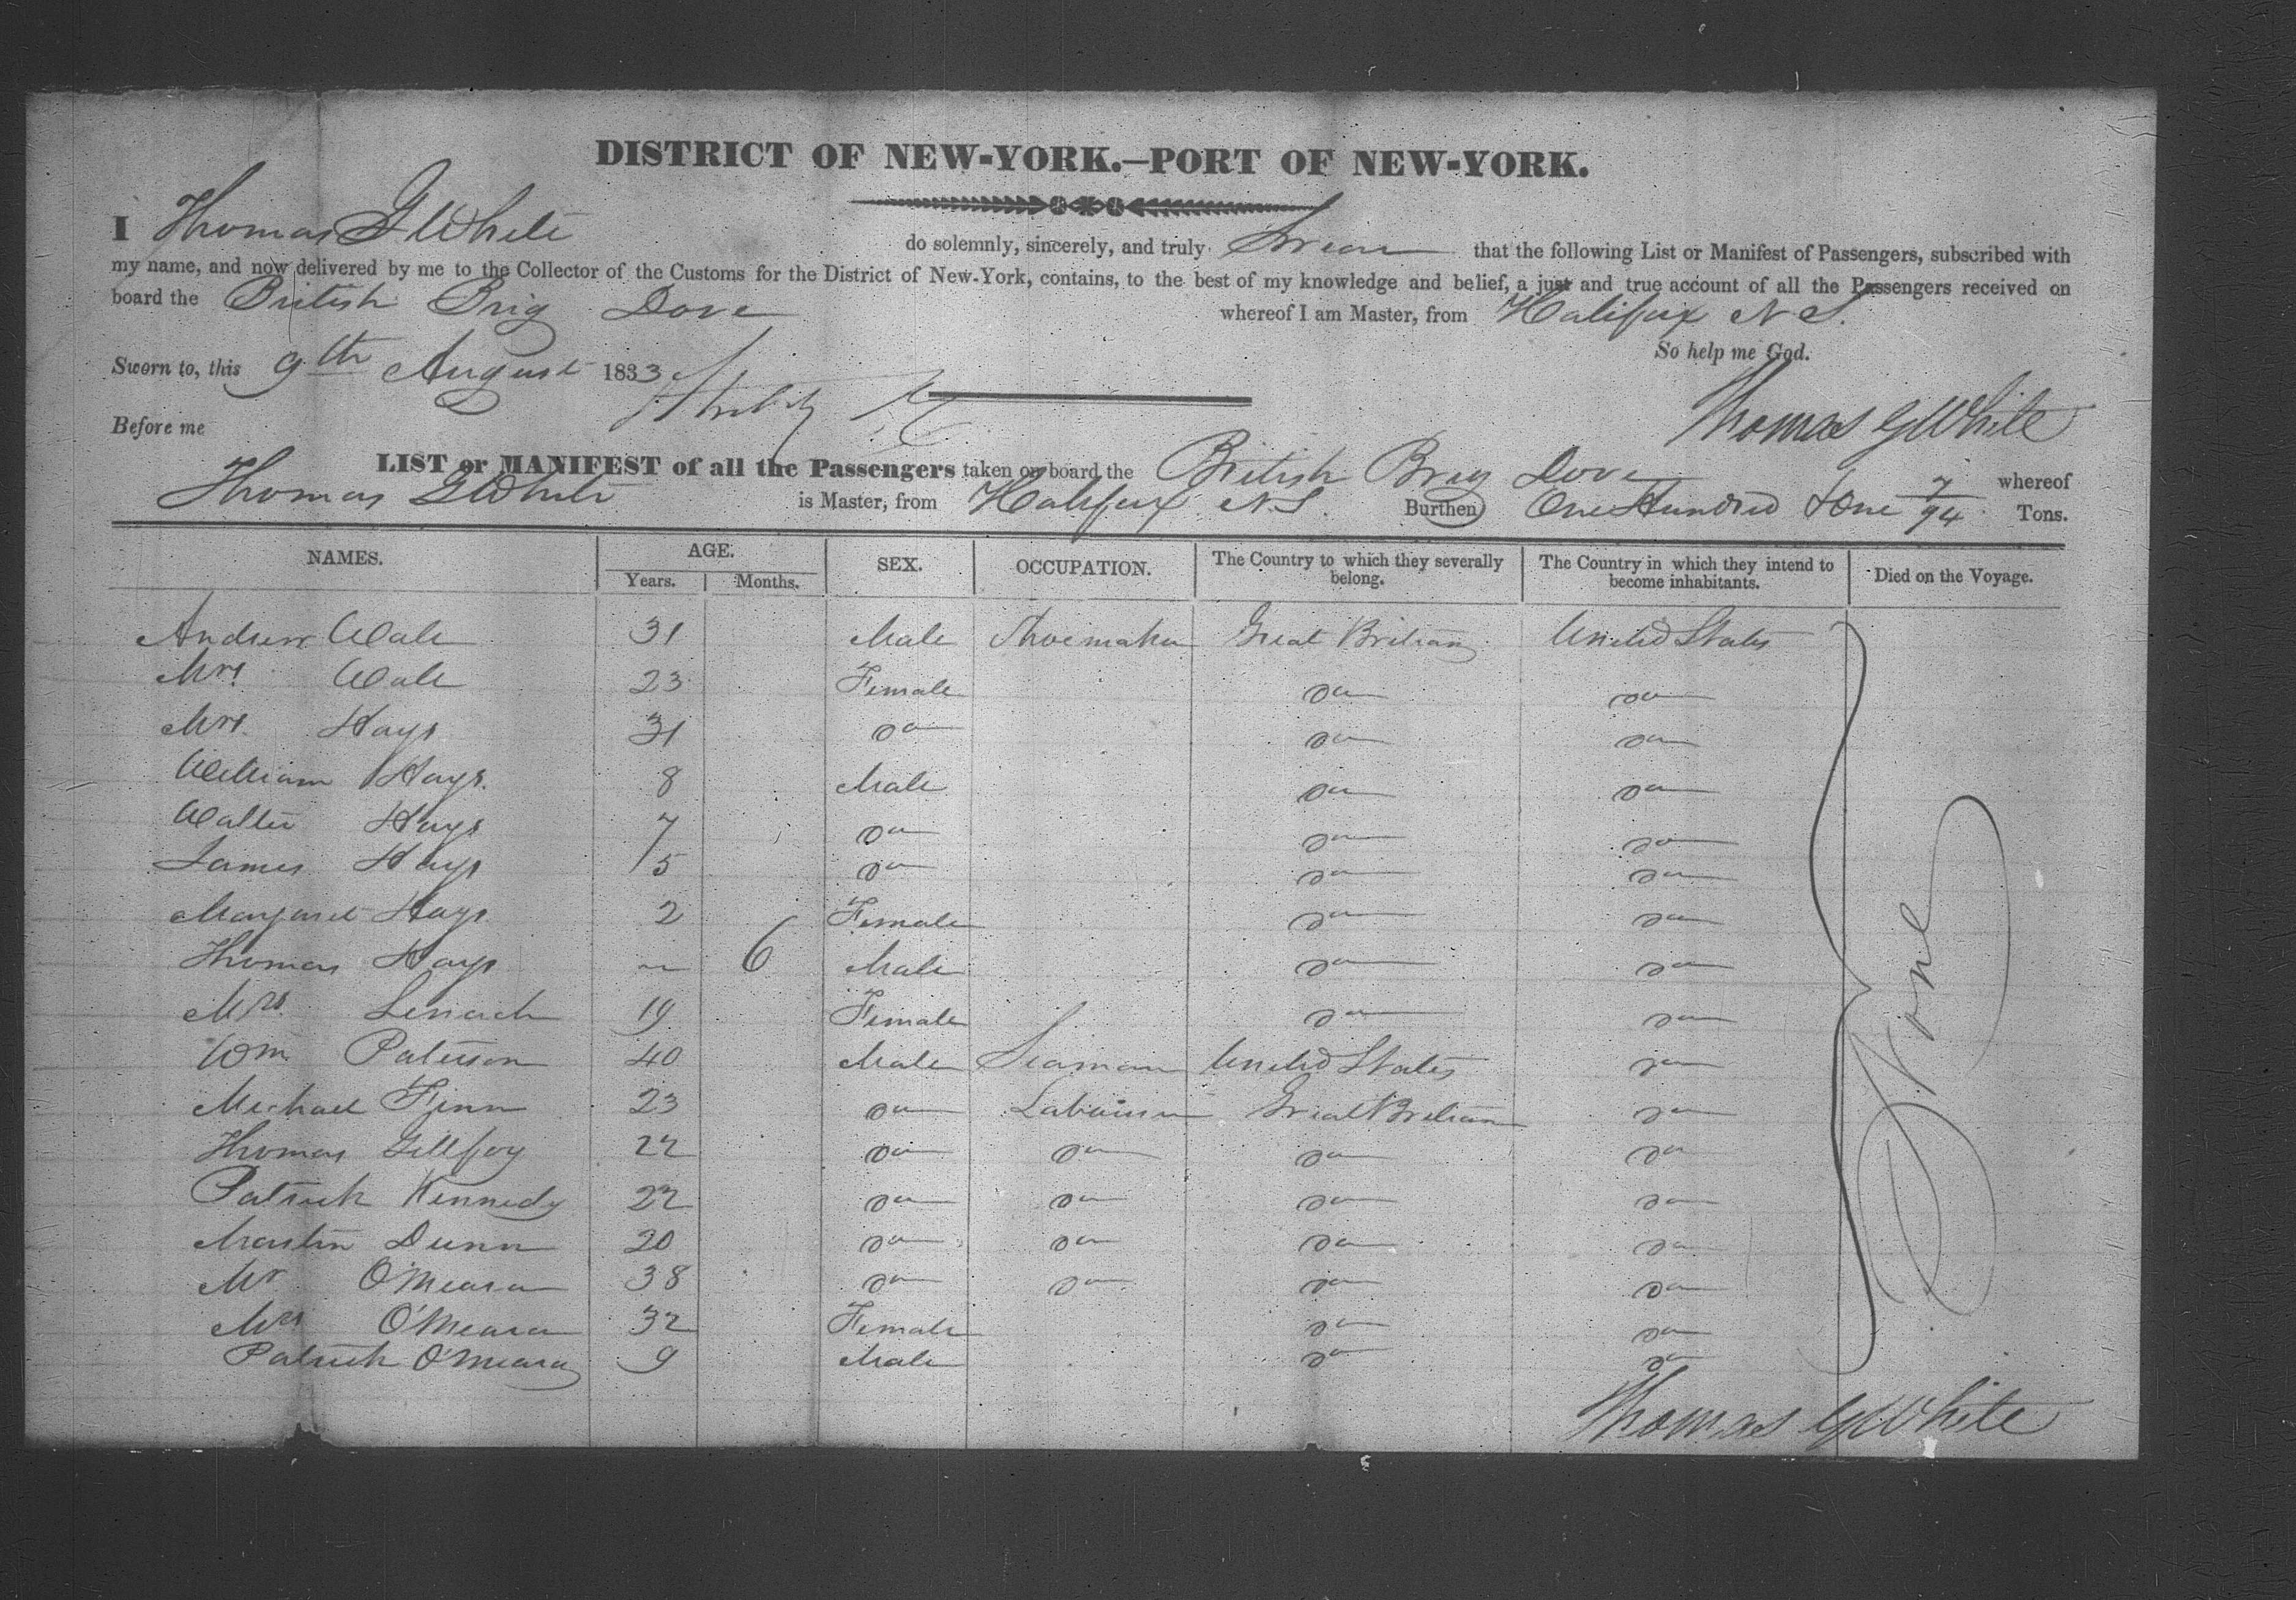 DISTRICT OF NEW-YORK.—PORT OF NEW-YORK.
I Thomas G White do solemnly, sincerely, and truly Swear that the following List or Manifest of Passengers, subscribed with
my name, and now delivered by me to the Collector of the Customs for the District of New-York, contains, to the best of my knowledge and belief, a just and true account of all the Passengers received on
board the British Brig Dove whereof I am Master, from Halifax N S.
So help me God.
Sworn to, this 9th August 1833
Thomas G White
Before me
LIST or MANIFEST of all the Passengers taken on board the British Brig Dove whereof
Thomas G White is Master, from Halifax N S. Burthen One Hundred & One 7/94 Tons.
NAMES. AGE. SEX. OCCUPATION. The Country to which they severally belong. The Country in which they intend to become inhabitants. Died on the Voyage.
Years. Months.
Andrew Wale 31 Male Shoemaker Great Britian United States
Mrs. Wale 23 Female Do Do
Mrs. Hays 31 Do Do Do
William Hays. 8 Male Do Do
Walter Hays 7 Do Do Do
James Hays 5 Do Do Do
Margaret Hays 2 Female Do Do
Thomas Hays ~ 6 Male Do Do
Mrs. 19 Female Do Do
Wm Paterson 40 Male Seaman United States Do
Michael Finn 23 Do Great Britian Do
Thomas Gillfoy 22 Do Do Do Do
Patrick Kennedy 22 Do Do Do Do
Martin Dunn 20 Do Do Do Do
Mr O'Meara 38 Do Do Do Do
Mrs O'Meara 32 Female Do Do
Patrick O'Meara 9 Male Do Do
None
Thomas G White